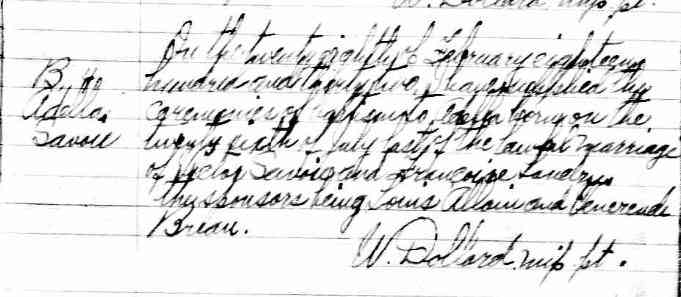 W. Dollard mip pt.
On the twenty eighth of February eighteen
hundred and thirty five, I have supplied the
ceremonies of baptism to Adella born on the
twenty sixth of July last of the lawful marriage
of Savoie and Françoise Landry
the sponsors being Louis Allain and Venerende
Breau.
W. Dollard mip pt.
B
Adella
Savoie